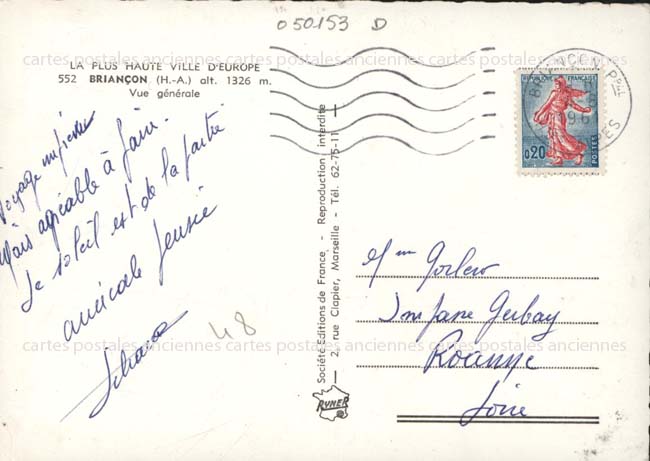 050153 D
LA PLUS HAUTE VILLE D'EUROPE
552 BRIANÇON (H.-A.) alt. 1326 m.
Vue générale
cartes postales anciennes cartes postales anciennes cartes postales anciennes
RÉPUBLIQUE FRANÇAISE
0,20
POSTES
BRIANÇON Ppal
196
Voyage
Mais agréable à faire.
Le soleil est de la partie
amicale pensée
48
Société Editions de France - Reproduction interdite
2, rue Clapier, Marseille - Tél. 62-75-11
RYNER
cartes postales anciennes cartes postales anciennes cartes postales anciennes
Roanne
Loire